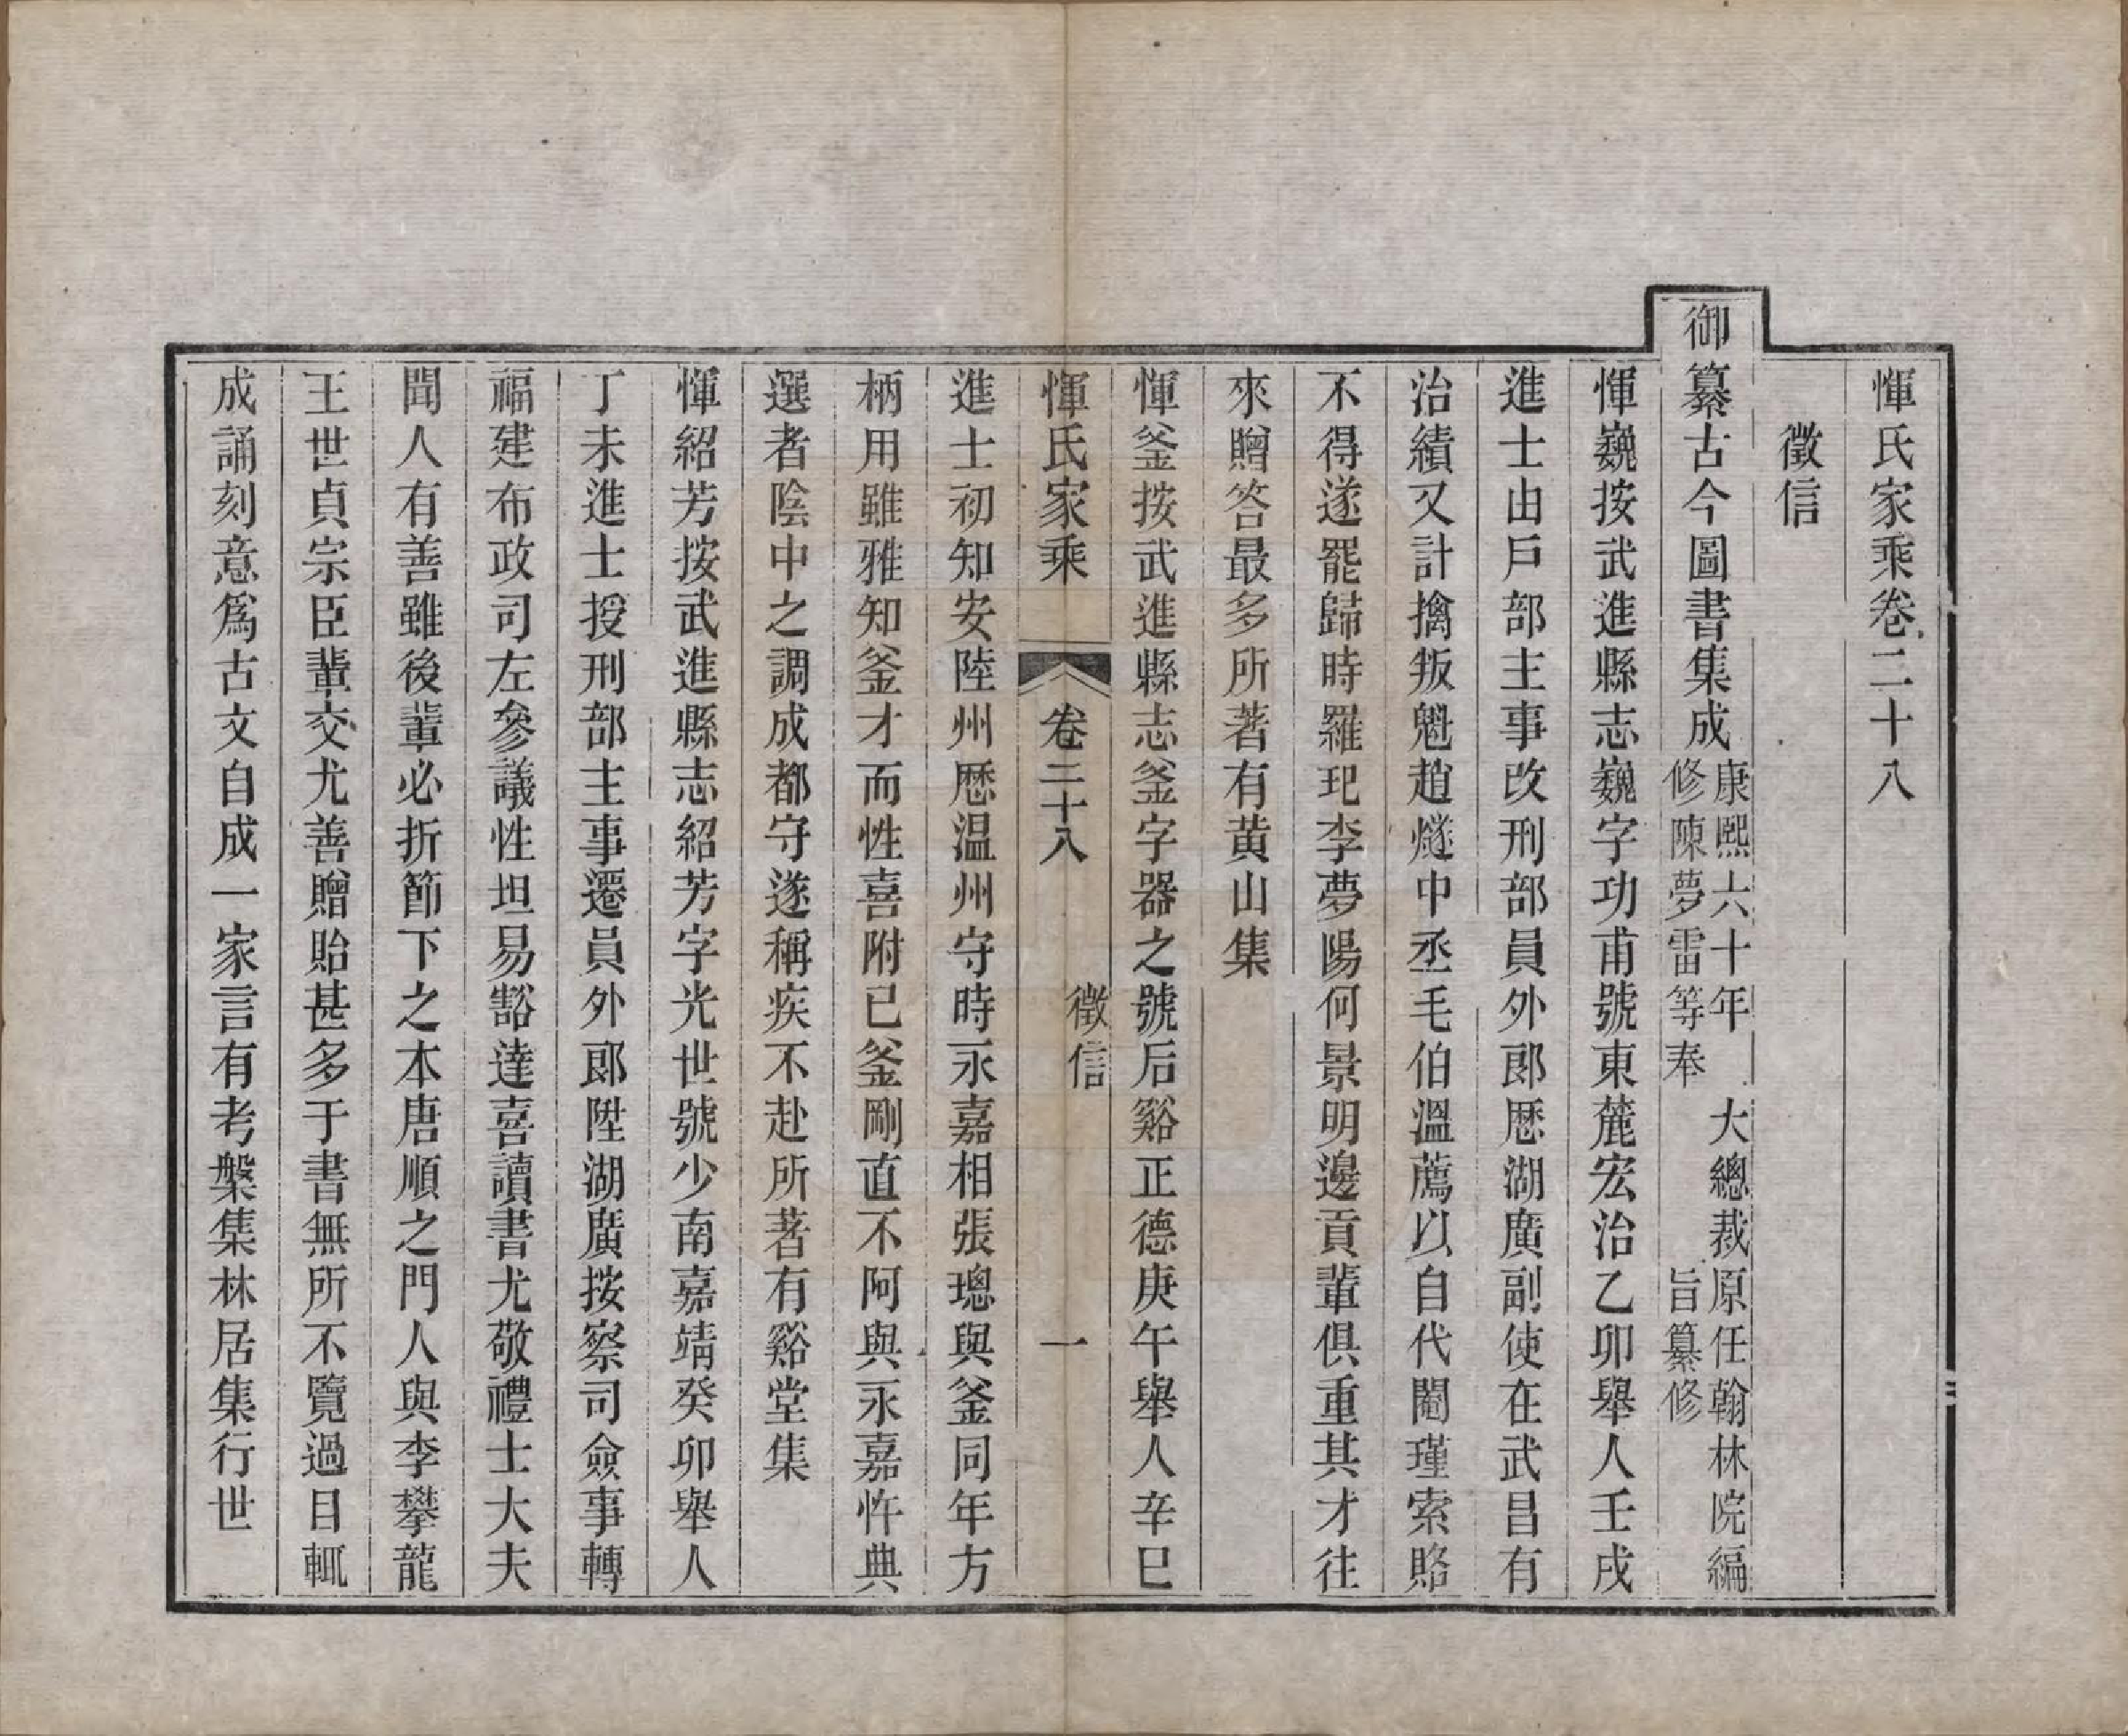 惲氏家乘卷二十八
徵信
御纂古今圖書集成
康熙六十年 大總裁原任翰林院編
修陳夢雷等奉 旨纂修
惲巍按武進縣志巍字功甫號東麓宏治乙卯舉人壬戌
進士由戶部主事改刑部員外郎歷湖廣副使在武昌有
治績又計擒叛魁趙燧中丞毛伯溫薦以自代閹瑾索賂
不得遂罷歸時羅玘李夢陽何景明邊貢輩俱重其才往
來贈答最多所著有黃山集
惲釜按武進縣志釜字器之號后谿正德庚午舉人辛巳
惲氏家乘 卷二十八 徵信 一
進士初知安陸州歷温州守時永嘉相張璁與釜同年方
柄用雖雅知釜才而性喜附已釜剛直不阿與永嘉忤典
選者陰中之調成都守遂稱疾不赴所著有谿堂集
惲紹芳按武進縣志紹芳字光世號少南嘉靖癸卯舉人
丁未進士授刑部主事遷員外郎陞湖廣按察司僉事轉
福建布政司左參議性坦易豁達喜讀書尤敬禮士大夫
聞人有善雖後輩必折節下之本唐順之門人與李攀龍
王世貞宗臣輩交尤善贈貽甚多于書無所不覽過目輒
成誦刻意爲古文自成一家言有考槃集林居集行世